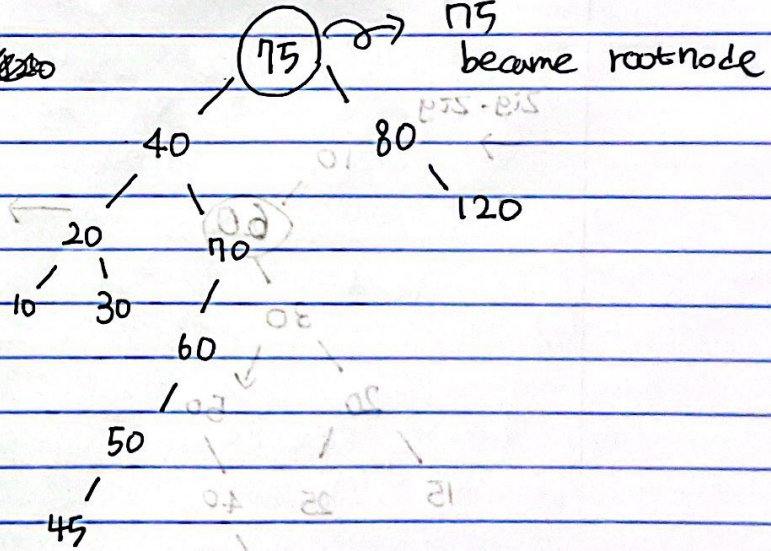 75
75
became rootnode
40 80
120
20 70
10 30
60
50
45